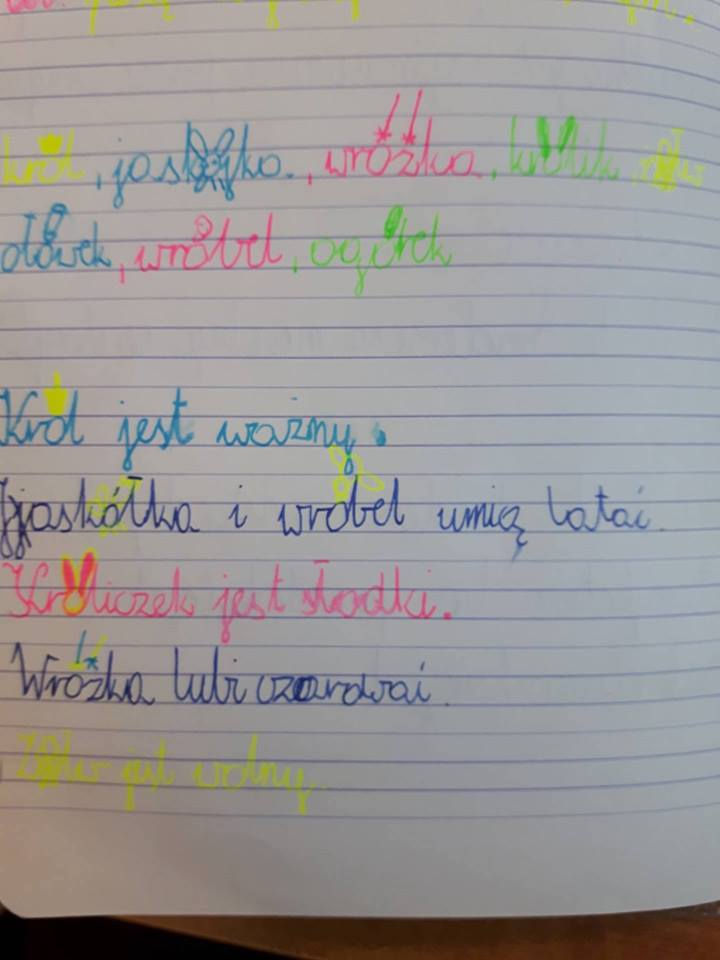 król, jaskółka, wróżka, królik, żółw
ołówek, wróbel, ogórek
Król jest ważny.
Jjaskółka i wróbel umią latać.
Króliczek jest słodki.
Wróżka lubi czarować.
Żółw jest wolny